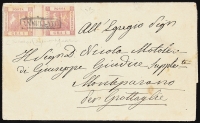 All' Egregio Sigr
Il Sigr D. Nicola Motolese
di Giuseppe Giudice Supplte
Monteparano
per Grottaglie